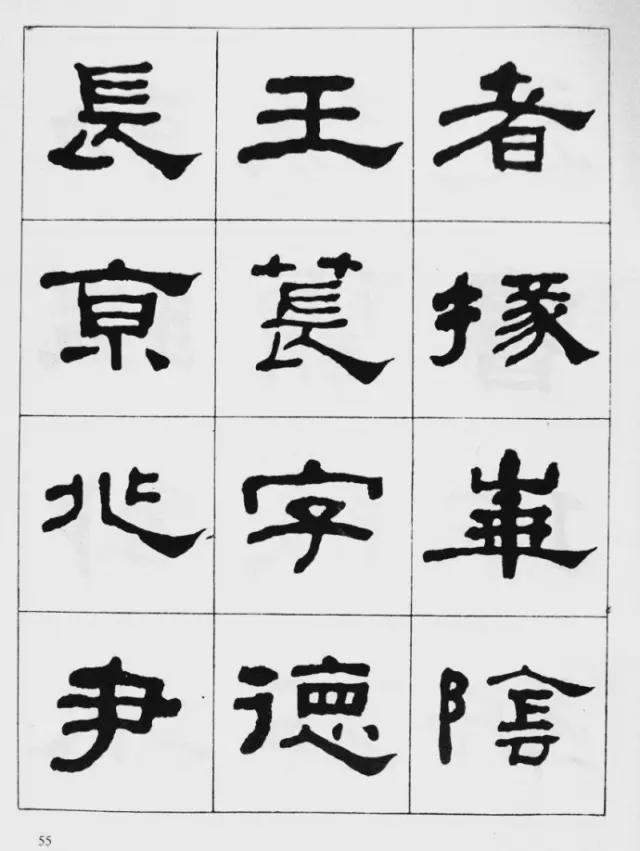 者掾華陰
王萇字德
長京兆尹
55